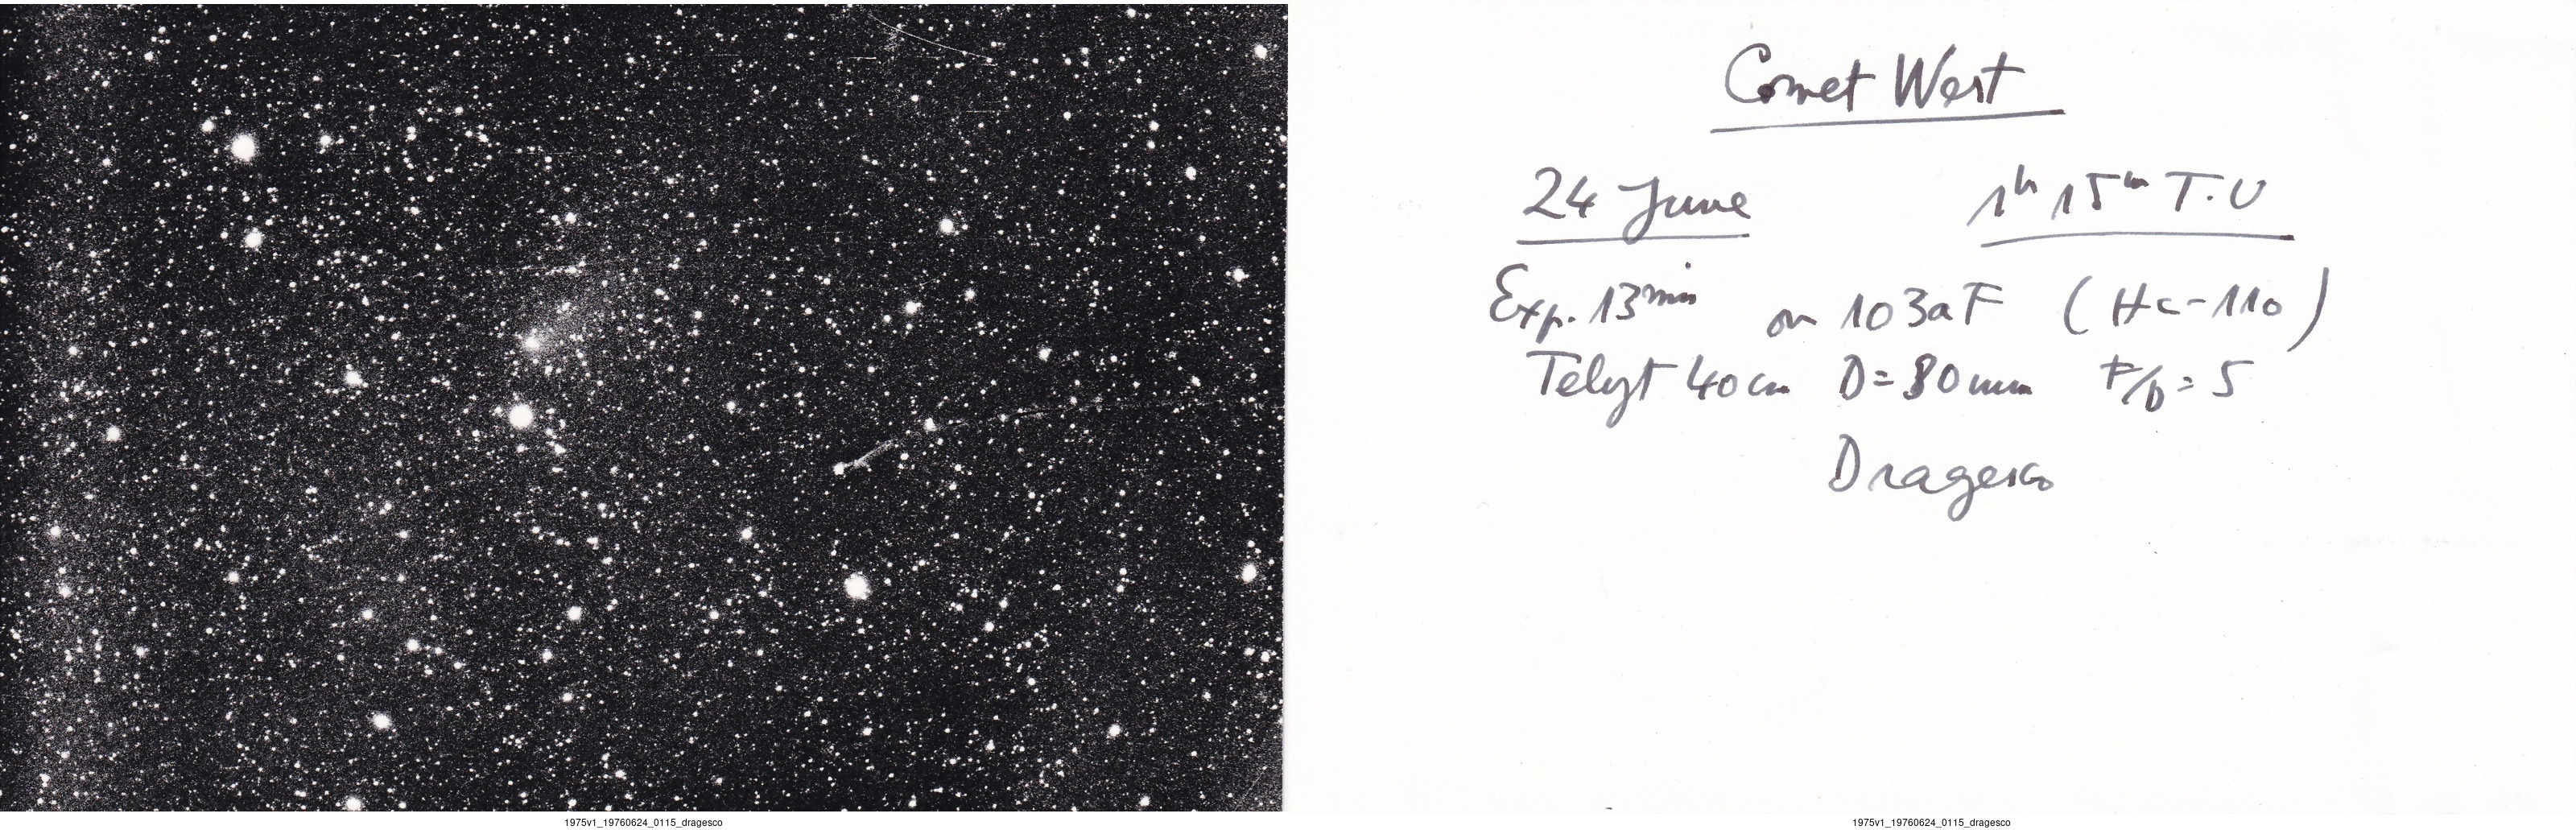 Comet West
24 June 1h 15m T.U
Exp. 13min on 103aF (Hc-110)
Telyt 40cm D=80mm F/D=5
Dragesco
1975v1_19760624_0115_dragesco 1975v1_19760624_0115_dragesco